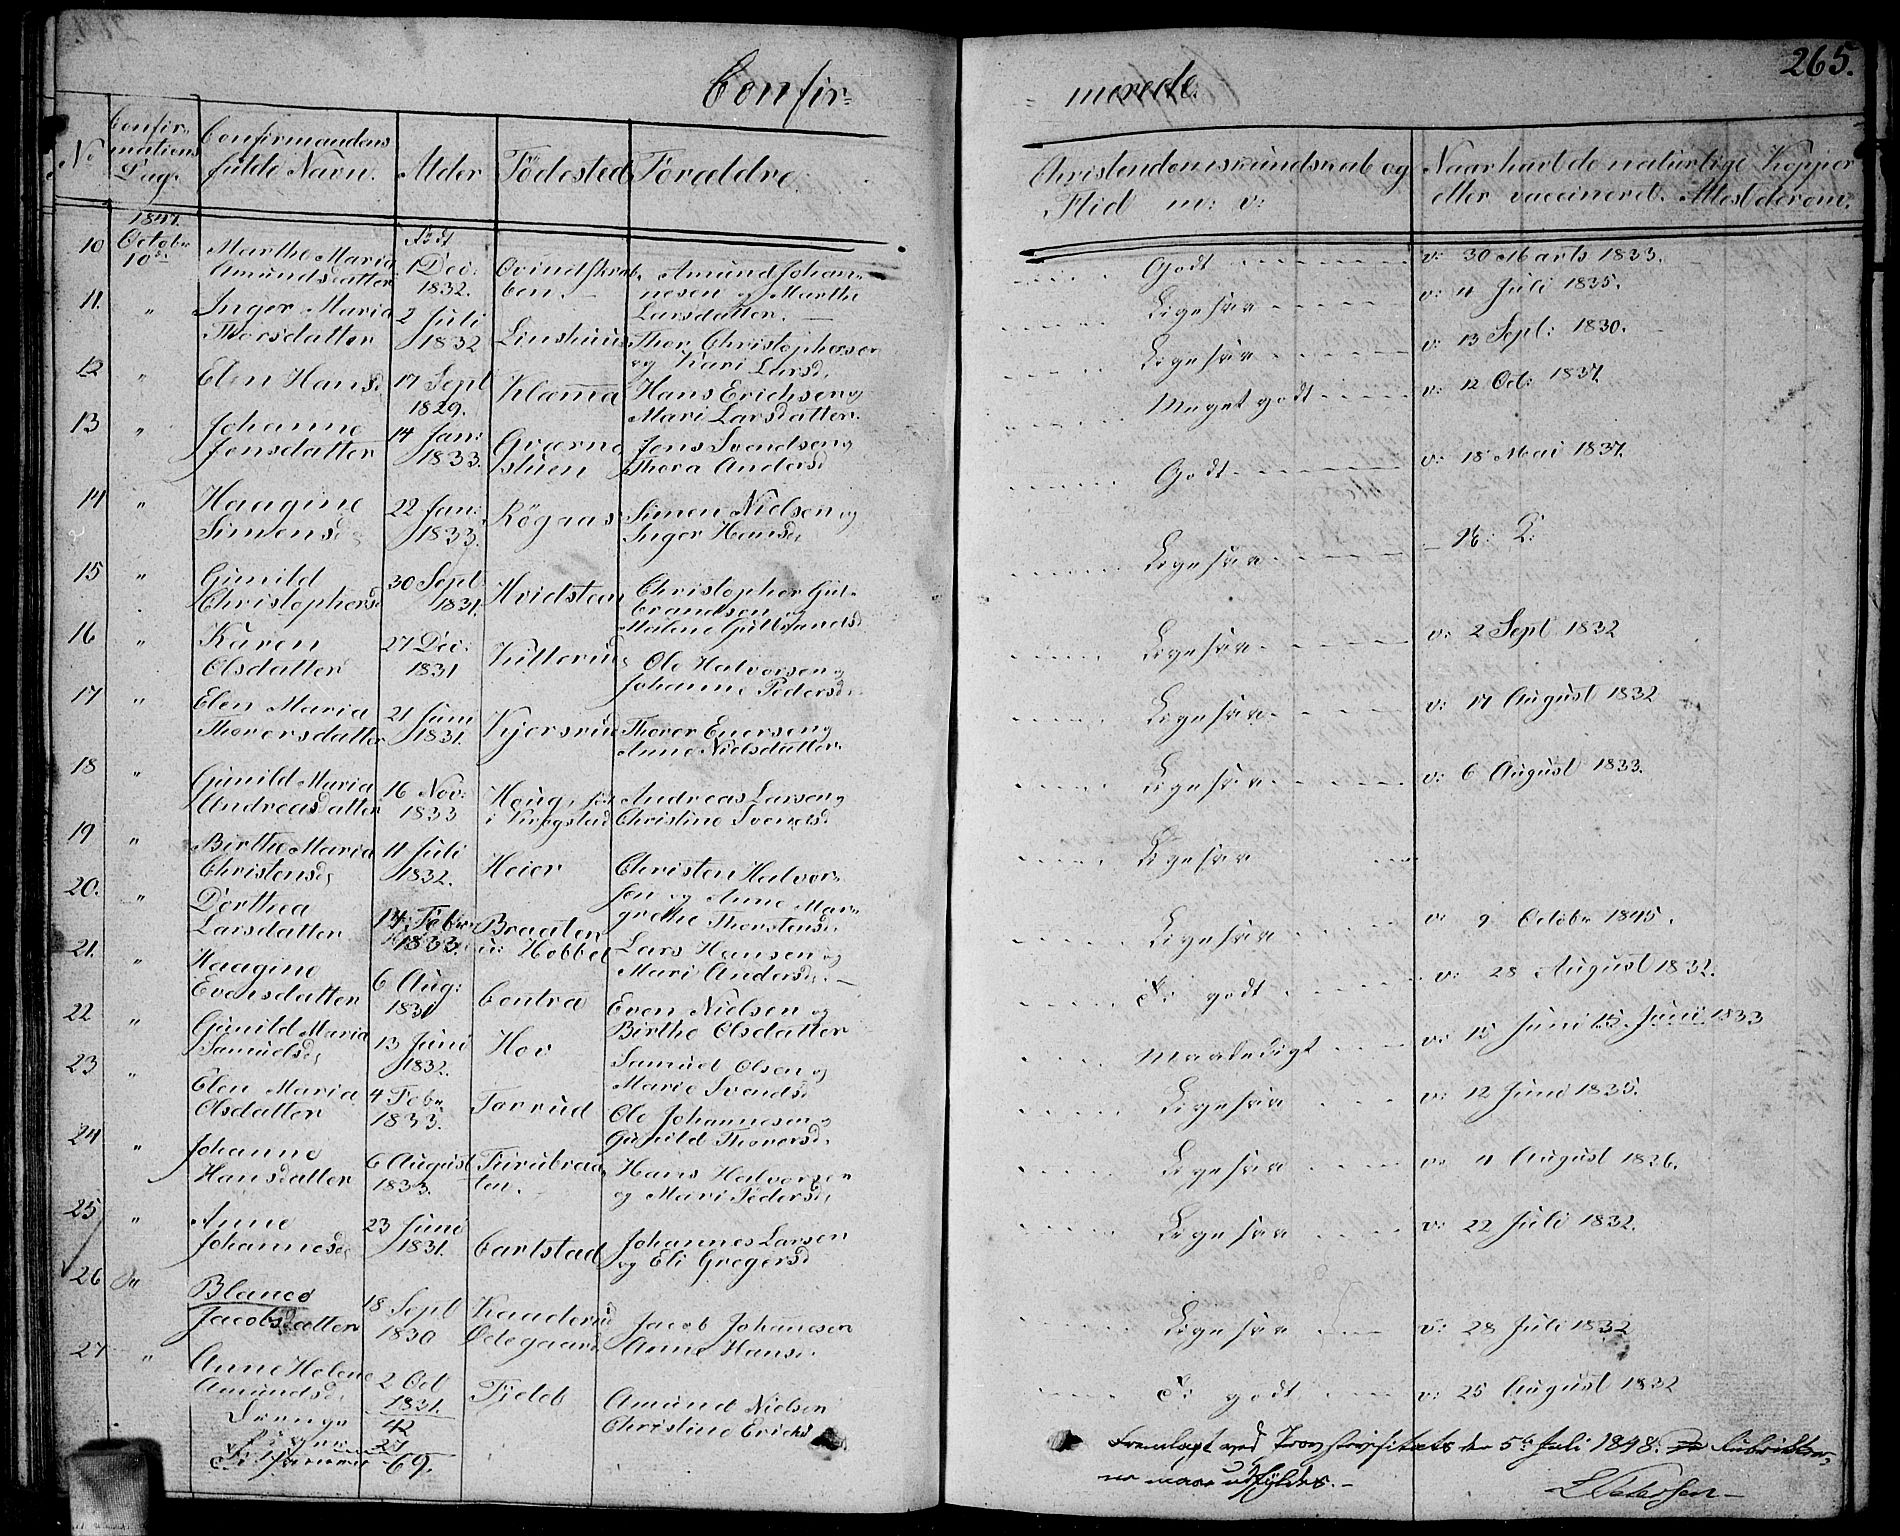 265.
Confir=
=merede.
No
Confir=
mations
Dag.
Confirmandens
fulde Navn.
Alder
Födested
Forældre
Christendomskundskab og
Flid m: v:
Naar havt de naturlige Kopper
eller vaccineret. Attest derom.
1847.
October
10de
Födt
10 Marthe Maria 1 Dec: Amund Johan=
Amundsdatter 1832. nesen og Marthe
Larsdatter.
Godt v: 30 Marts 1833.
11. " Inger Maria 2 Juli Linshuus Thor Christophersen
Thorsdatter 1832 og Kari Larsd.
Ligesaa v: 4 Juli 1835.
12 " Elen Hansd 17 Sept Klama Hans Erichsen og
1829. Mari Larsdatter.
Ligesaa v: 13 Sept: 1830.
13 " Johanne 14 Jan: Qværne Jens Svendsen og
Jensdatter 1833. stuen Thora Andersd
Meget godt v: 12 Oct: 1837.
14 " Haagine 22 Jan: Rögaas Simen Nielsen og
Simensd 1833. Inger Hansd,
Godt v: 18 Mai 1837.
15 " Gunild 30 Sept Hvidsteen Christopher Gul=
Christophersd 1831. brandsen og
Malene Gulbrandsd
Ligesaa
16 " Karen 27 Dec: Ole Halvorsen og
Olsdatter 1831 Johanne Pedersd.
Ligesaa v: 2 Sept 1832
17 " Elen Maria 21 Juni Kjersrud Thorer Enersen og
Thorersdatter 1831. Anne Nielsdatter.
Ligesaa v: 17 August 1832
18 " Gunild Maria 16 Nov: Houg, Andreas Larsen og
Andreasdatter 1833 i Krogstad Christine Svendsd
Ligesaa v: 6 August 1833.
19 " Birthe Maria 11 Juli Heier Christen Halvor=
Christensd, 1832. sen og Anne Mar=
grethe Thorstensd,
Ligesaa
20. " Dorthea 14 Febr Braaten Lars Hansen og
Larsdatter 1833. i Hobbel Mari Andersd,
Ligesaa v: 9 Octobr 1845.
21. " Haagine 6 Aug: Centra Even Nielsen og
Evensdatter 1831 Birthe Olsdatter
T: godt v: 28 August 1832.
22 " Gunild Maria 13 Juni Hov Samuel Olsen og
Samuelsd, 1832. Marie Svendsd
Maadeligt v: 15 Juni 15. Juni 1833
23 " Elen Maria 4 Febr Torrud Ole Johannesen og
Olsdatter 1833. Gunild Thorersd,
Ligesaa v: 12 Juni 1835.
24 " Johanne 6 August Furubraa= Hans Halvorsen
Hansdatter 1833. ten. og Mari Pedersd,
Ligesaa v: 11 August 1826.
25 " Anne 23 Juni Carlstad Johannes Larsen
Johannesd 1831. og Eli Gregersd
Ligesaa v: 22 Juli 1832.
26 " Blanco 18 Sept Kaaderud Jacob Johannesen
Jacobsdatter 1830 Ödegaard Anne Hansd.
Ligesaa v: 28 Juli 1832
27 " Anne Helene 2 Oct Fjeld Amund Nielsen
Amundsd, 1831. Christine Erichsd
T: godt v: 25 August 1832
Drenge 42
Piger 27
69.
Fremlagt ved den 5te Juli 1848.
maae udfyldes.
Petersen